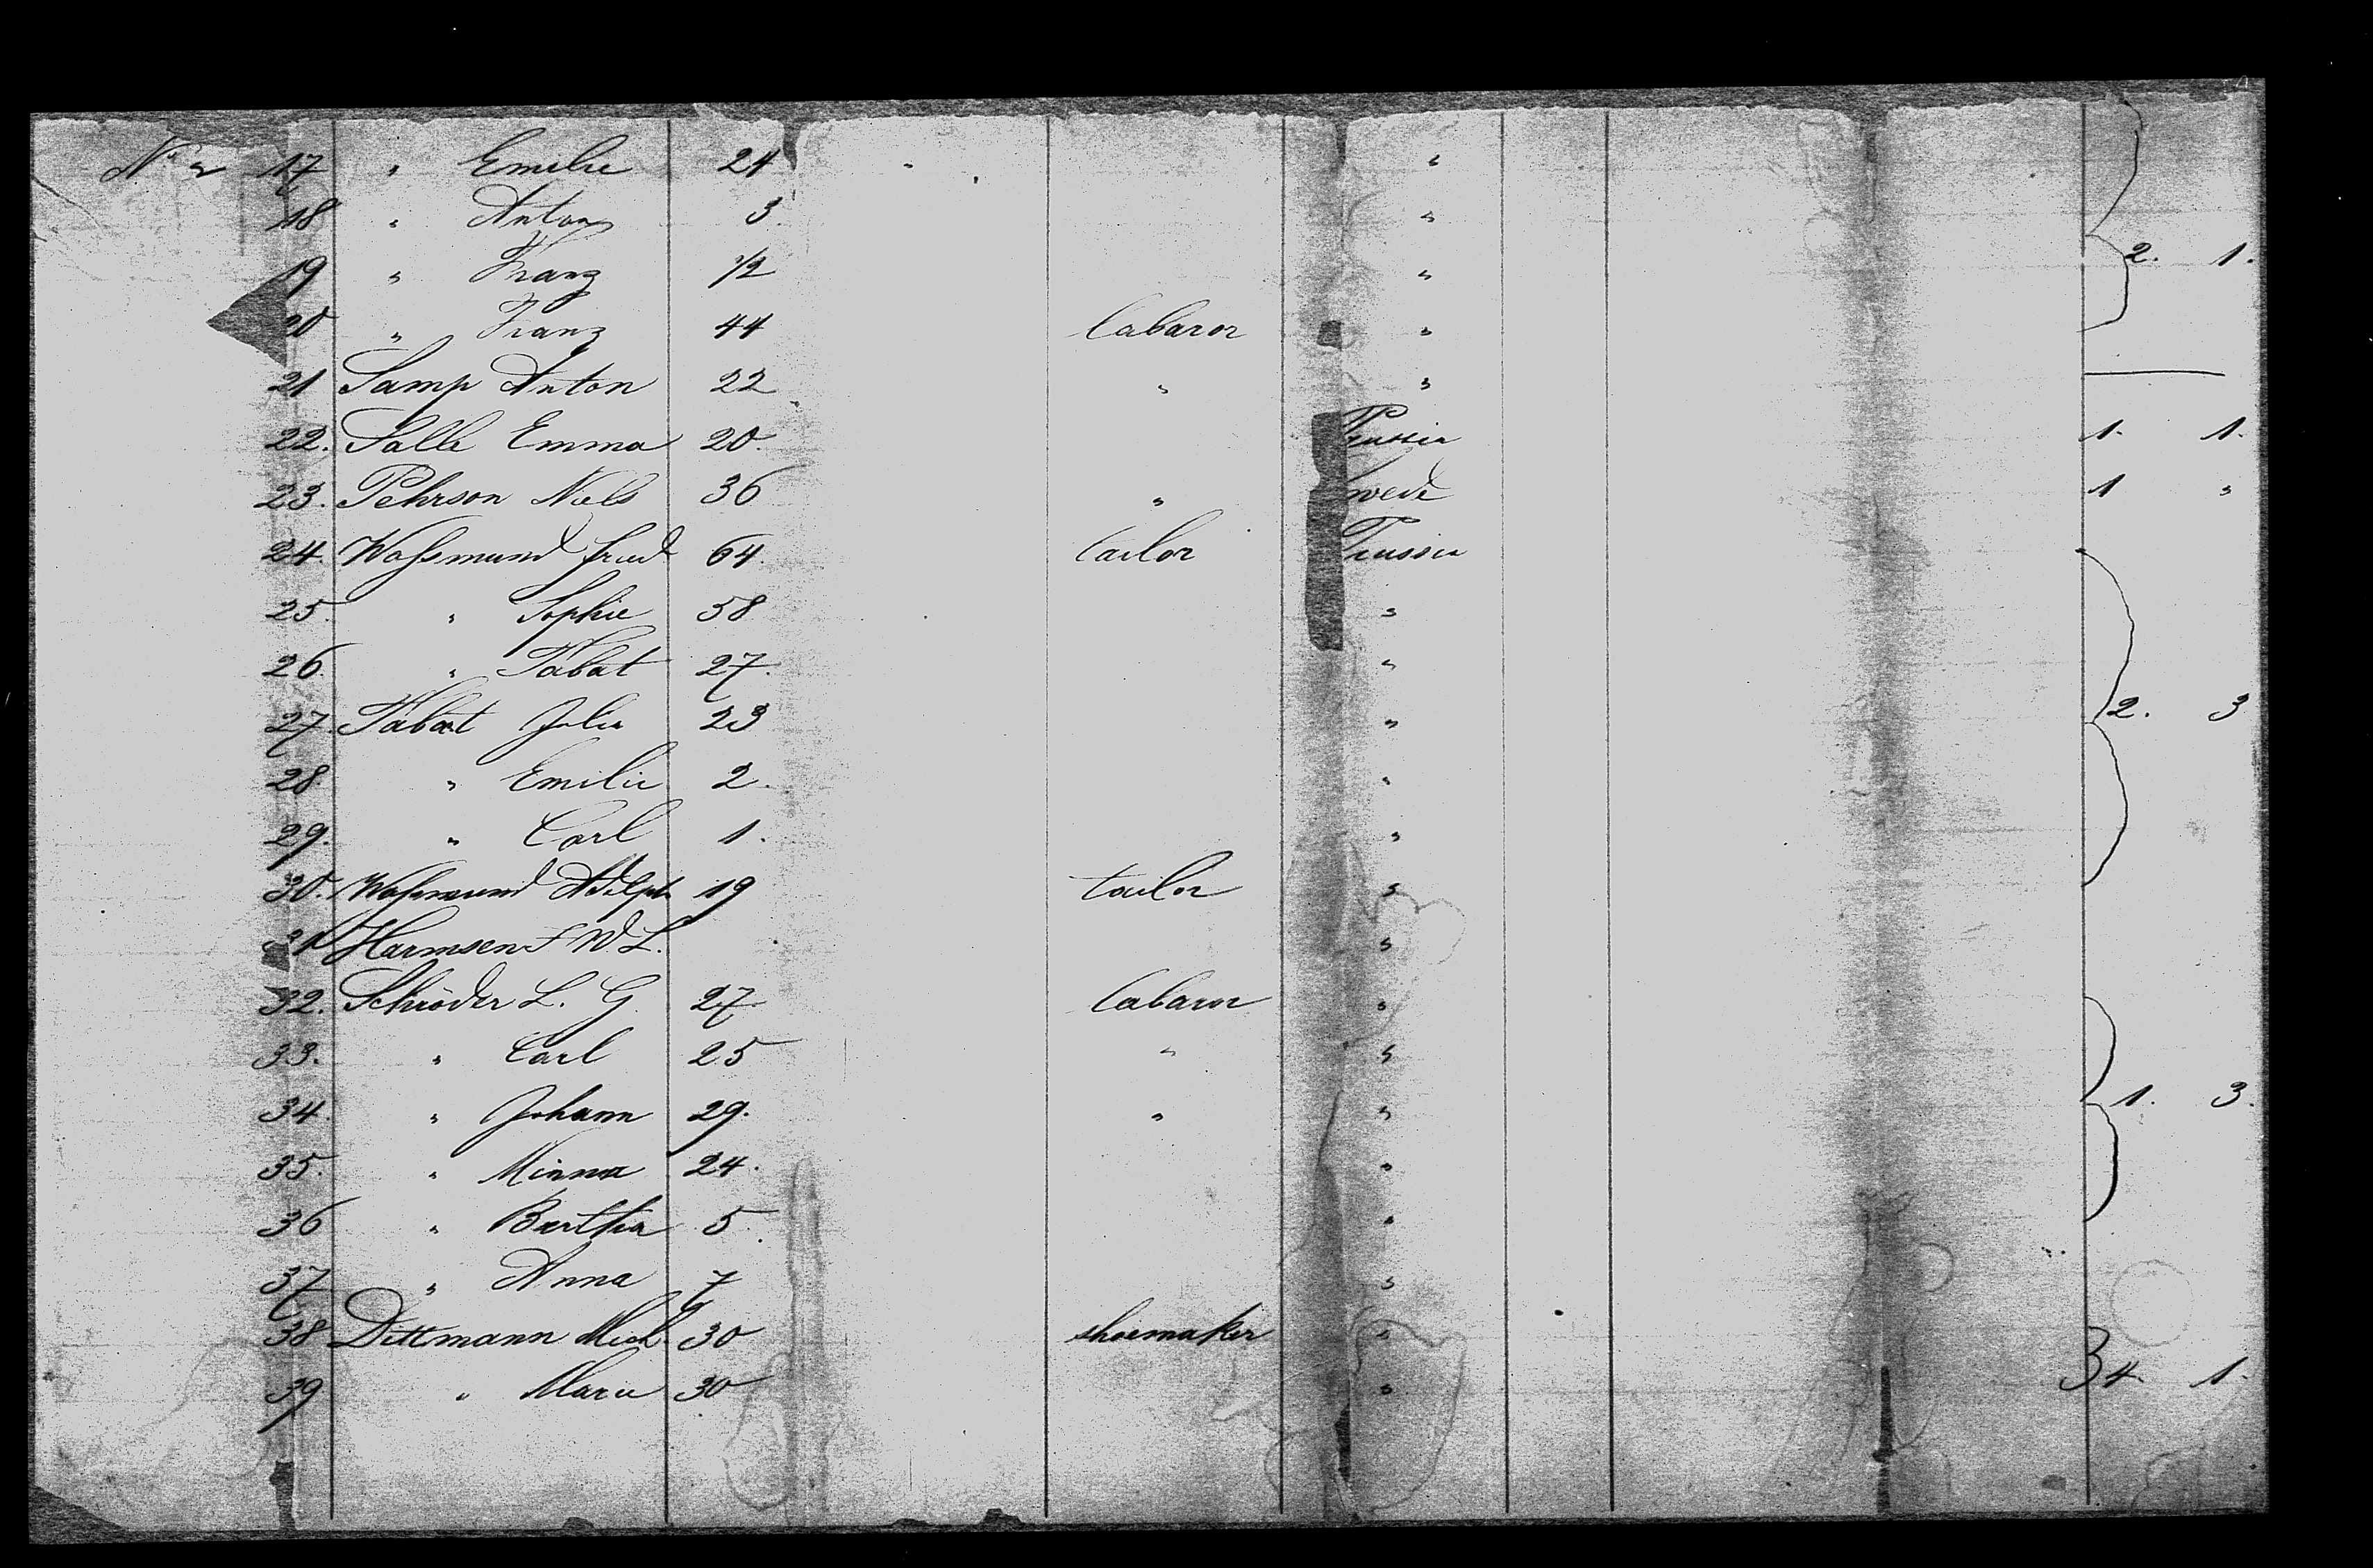 No 2 17 " Emilie 24 "
18 " Anton 3 "
19 " Franz 1/2 " 2. 1.
20 " Franz 44 labaror "
21 Samp Anton 22 " "
22. Salle Emma 20. Prussia 1. 1.
23. Pehrson Niels 36 " wede 1 "
24. Waſsmund fried 64. tailor Prussia
25. " Sophie 58 "
26. " Tabat 27. "
27. Tabat Julia 23 " 2. 3
28 " Emilie 2. "
29. " Carl 1. "
30. Waſsmund Adolph 19 tailor "
31 Harmsen F W. L. "
32. Schröder L. G. 27 labaror "
33. " Carl 25 " "
34. " Johann 29. " " 1. 3.
35. " Minna 24. "
36 " Bertha 5. "
37 " Anna 7 "
38 Dittmann Mich 30 shoemaker "
39 " Marie 30 " 4. 1.